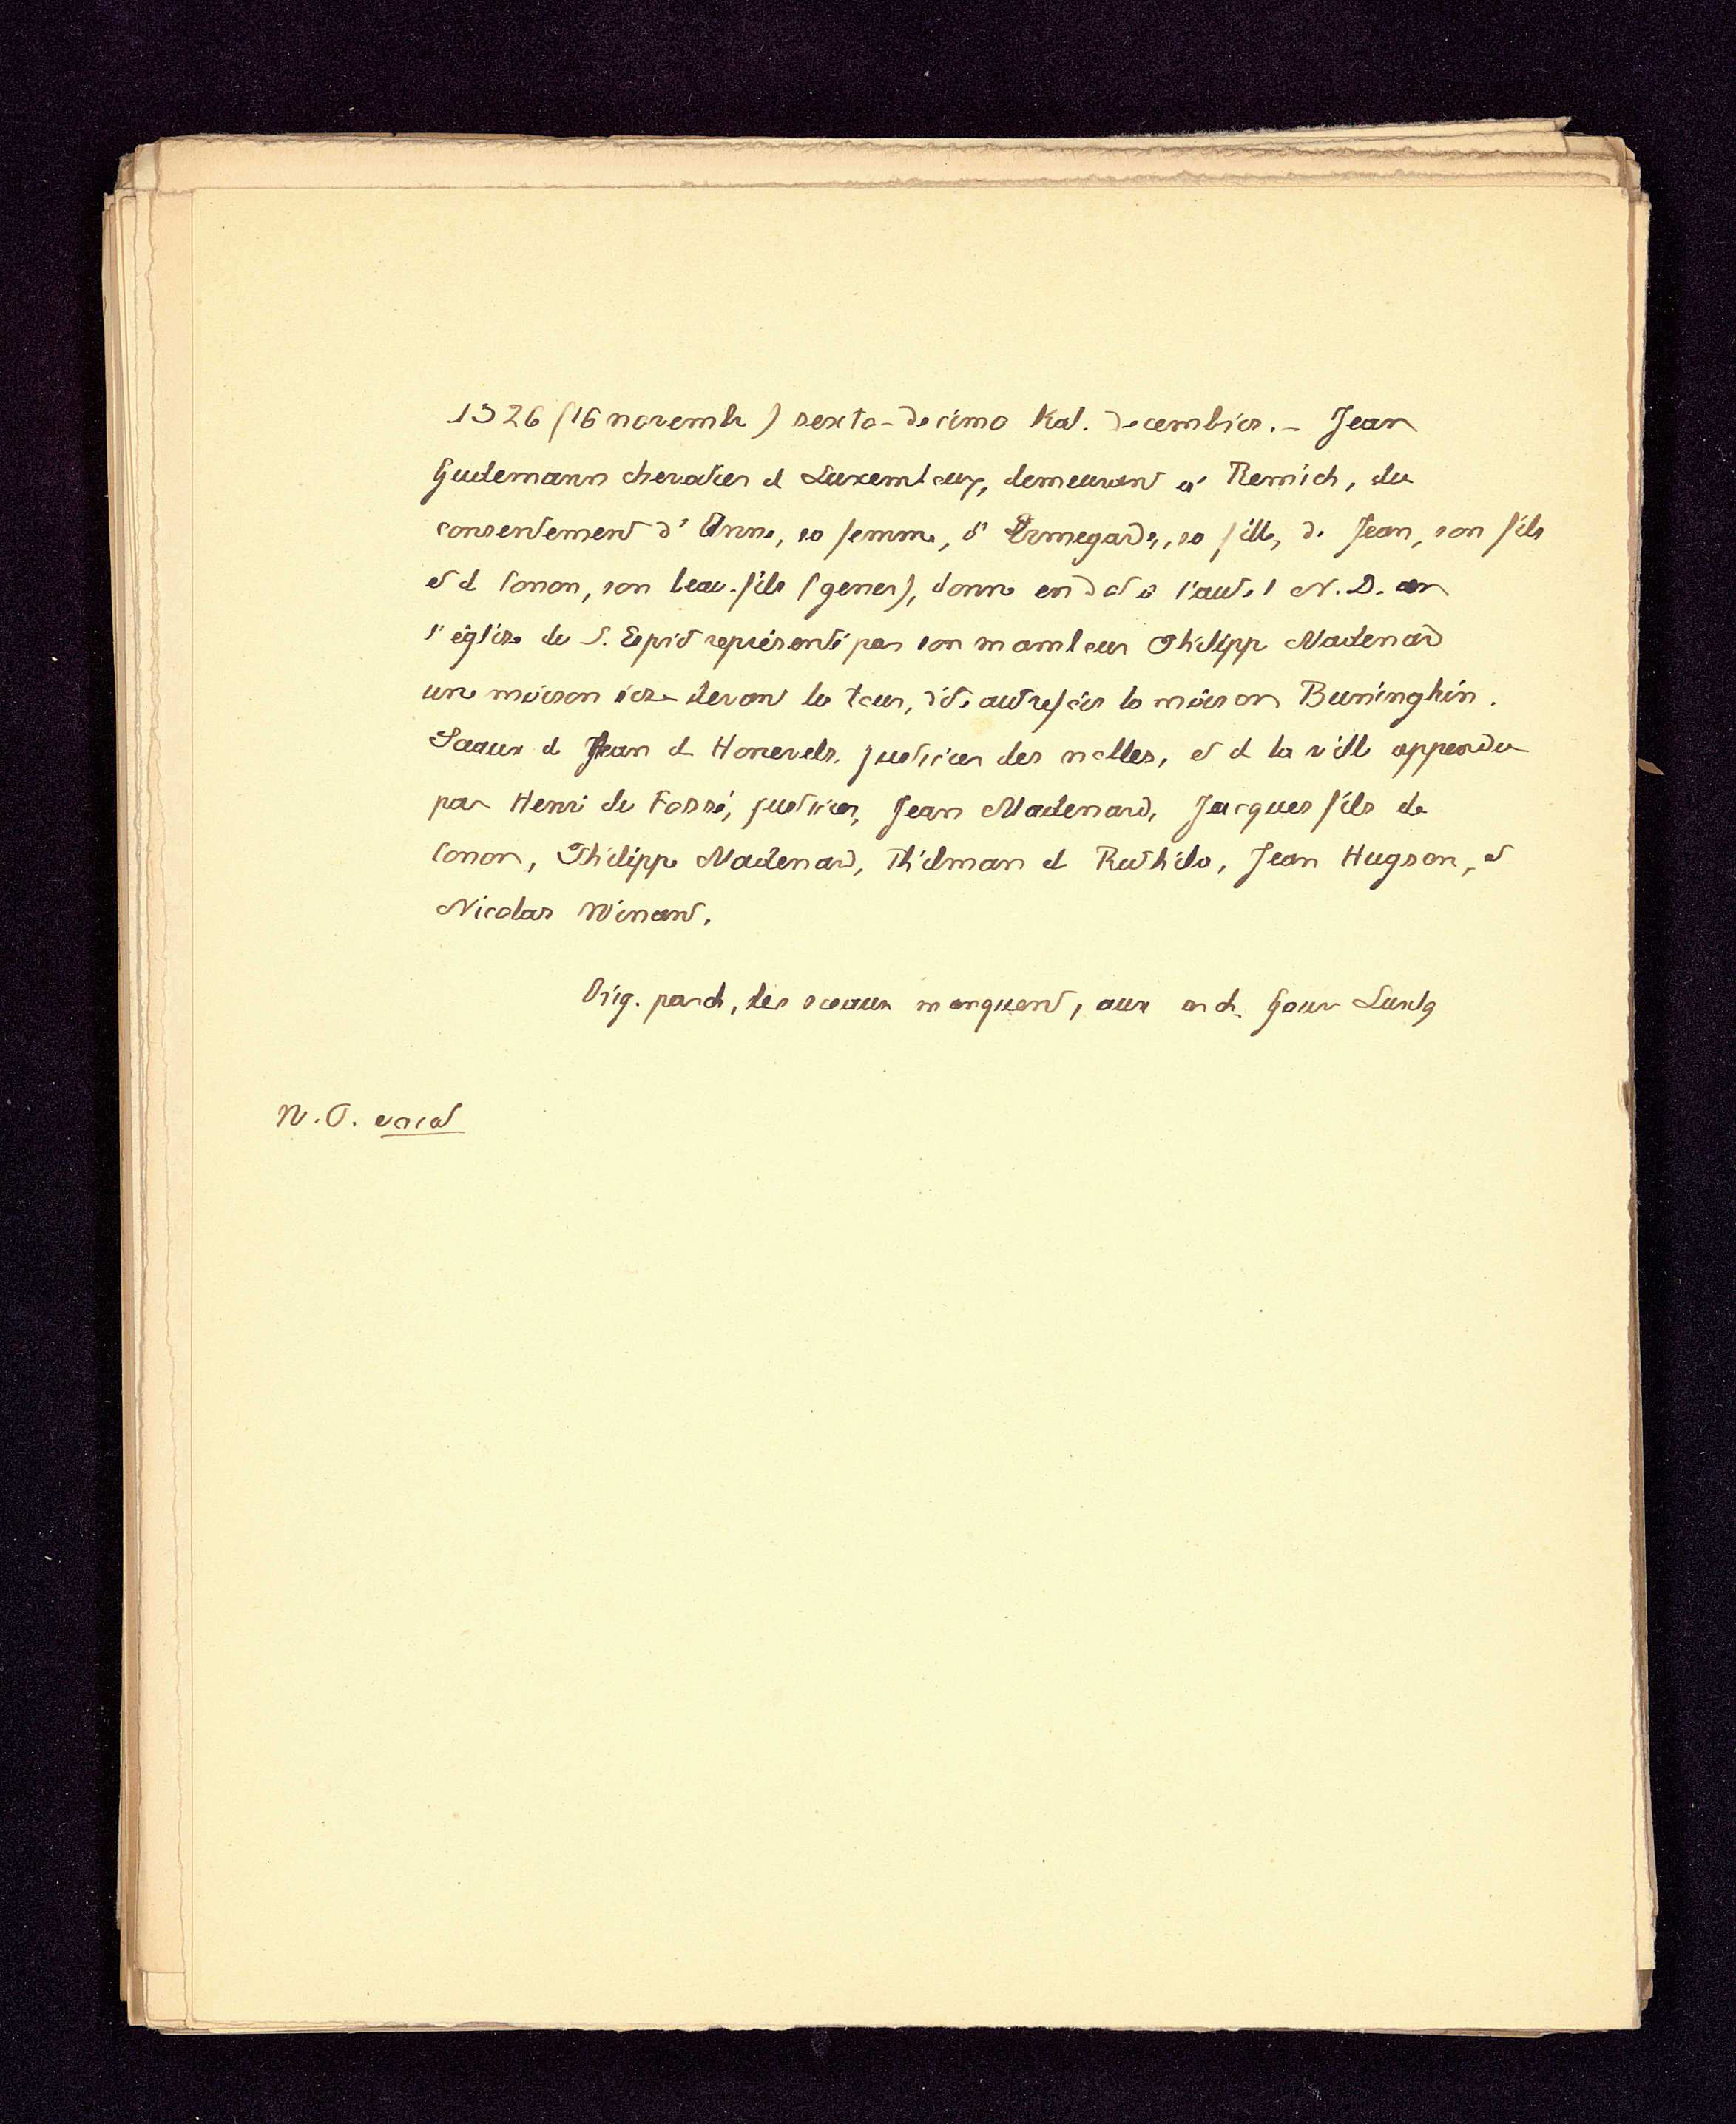 1326 (16 novembre) sexto-decimo Kal. decembris. - Jean
Gudemann chevalier de Luxembourg, demeurant à Remich, du
consentement d'Anne, sa femme, d'Ermegarde, sa fille, de Jean, son fils
et de Conon, son beau-fils (gener), donne en dot à l'autel N. D. en
l'église du S. Esprit représenté par son mambour Philippe Madenard
une maison sise devant la tour, dite autrefois la maison Buninghin.
Sceaux de Jean de Honevels, justicier des nobles, et de la ville appendu
par Henri du Fossé, justicier, Jean Madenard, Jacques fils de
Conon, Philippe Madenard, Thilman de Ruthila, Jean Hugson, et
Nicolas Winant.
Orig. parch, les sceaux manquent, aux arch. Gouv Luxbg
N.O.